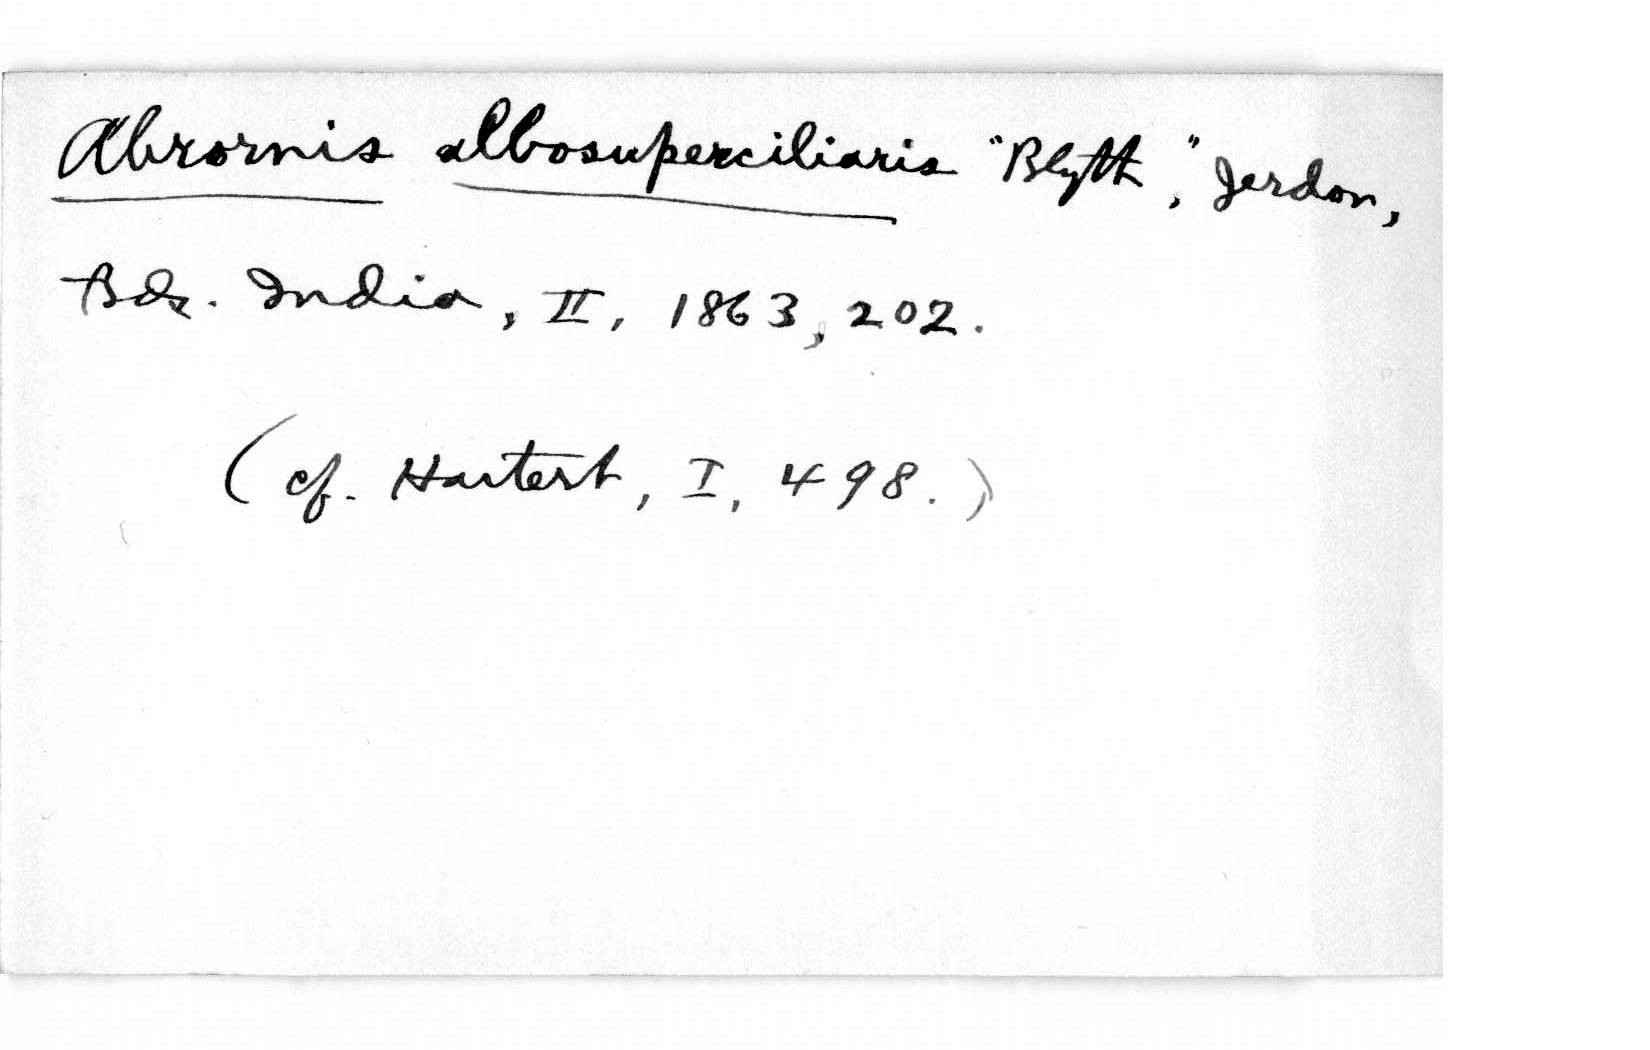 Abrornis albosuperciliaris "Blyth," Jerdon,
Bds. India, II, 1863, 202.
(cf. Hartert, I, 498.)